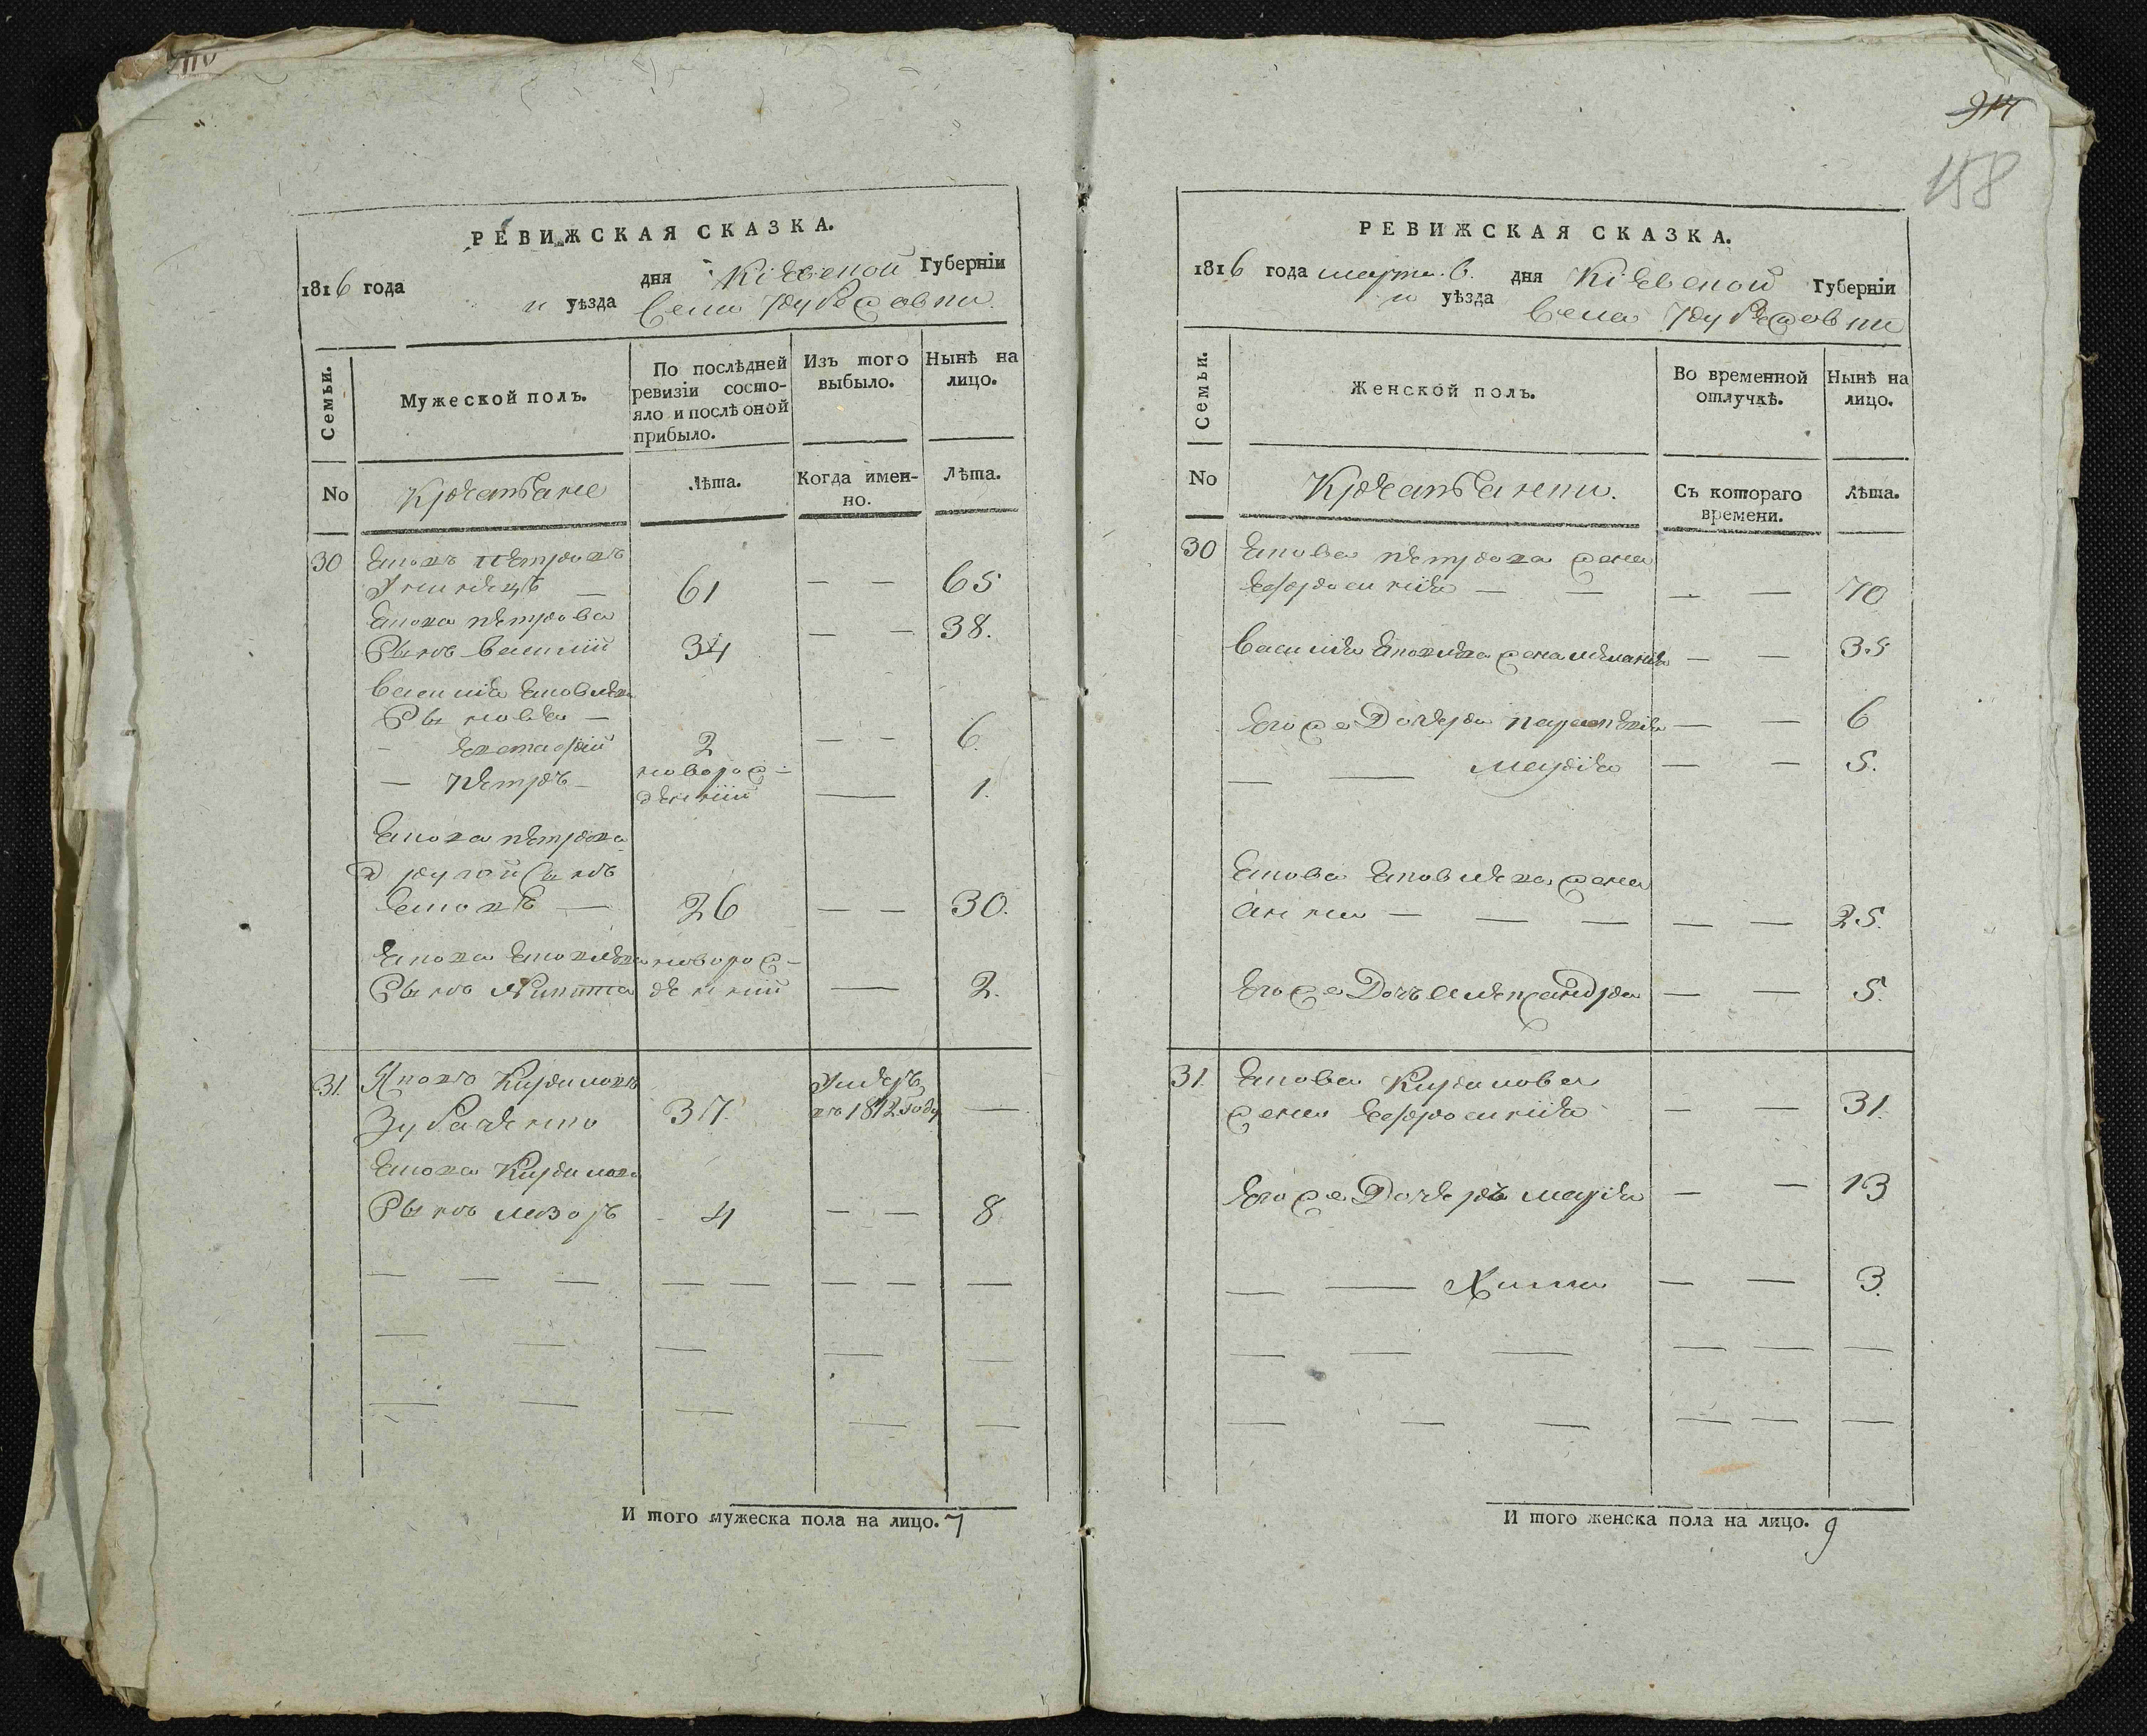 РЕВИЖСКАЯ СКАЗКА.
1816 года дня Кіевской Губерніи
и уѣзда Села
Семьи.
Мужеской полъ.
По послѣдней ревизіи состо-
яло и послѣ оной
прибыло.
Изъ того
выбыло.
Нынѣ на
лицо.
No
Крестьяне
Лѣта.
Когда имен-
но.
Лѣта.
30
Яковъ Петровъ
61 — — 65
Якова Петрова
Сынъ Василій 34 — — 38.
Василія Яковлева
Сыновья —
— Евстафій 2 — — 6.
— Петръ — новорож-
денный — 1.
Якова Петрова
другой Сынъ
Яковъ — 26 — — 30.
Якова Яковлева новорож-
Сынъ Никита денный — 2.
31. Яковъ Кириловъ Умеръ
37. въ 1812 году —
Якова Кирилова
Сынъ Лазоръ 4 — — 8
И того мужеска пола на лицо. 7
914
158
РЕВИЖСКАЯ СКАЗКА.
1816 года марта 6. дня Кіевской Губерніи
и уѣзда
Села
Семьи.
Женской полъ.
Во временной
отлучкѣ.
Нынѣ на
лицо.
No
Крестьянки.
Съ котораго
времени.
Лѣта.
30 Якова Петрова жена
Ефросинія — — — — 70
Василія Яковлева жена Меланія — — 35
Его же Дочери Параскевія — — 6
— — Марія — — 5.
Якова Яковлева жена
Анна — — — — — 25.
Его же Дочь Александра — — 5.
31. Якова Кирилова
жена Ефросинія — — 31.
Его же Дочеръ Марія — — 13
— — Химка — — 3.
И того женска пола на лицо. 9